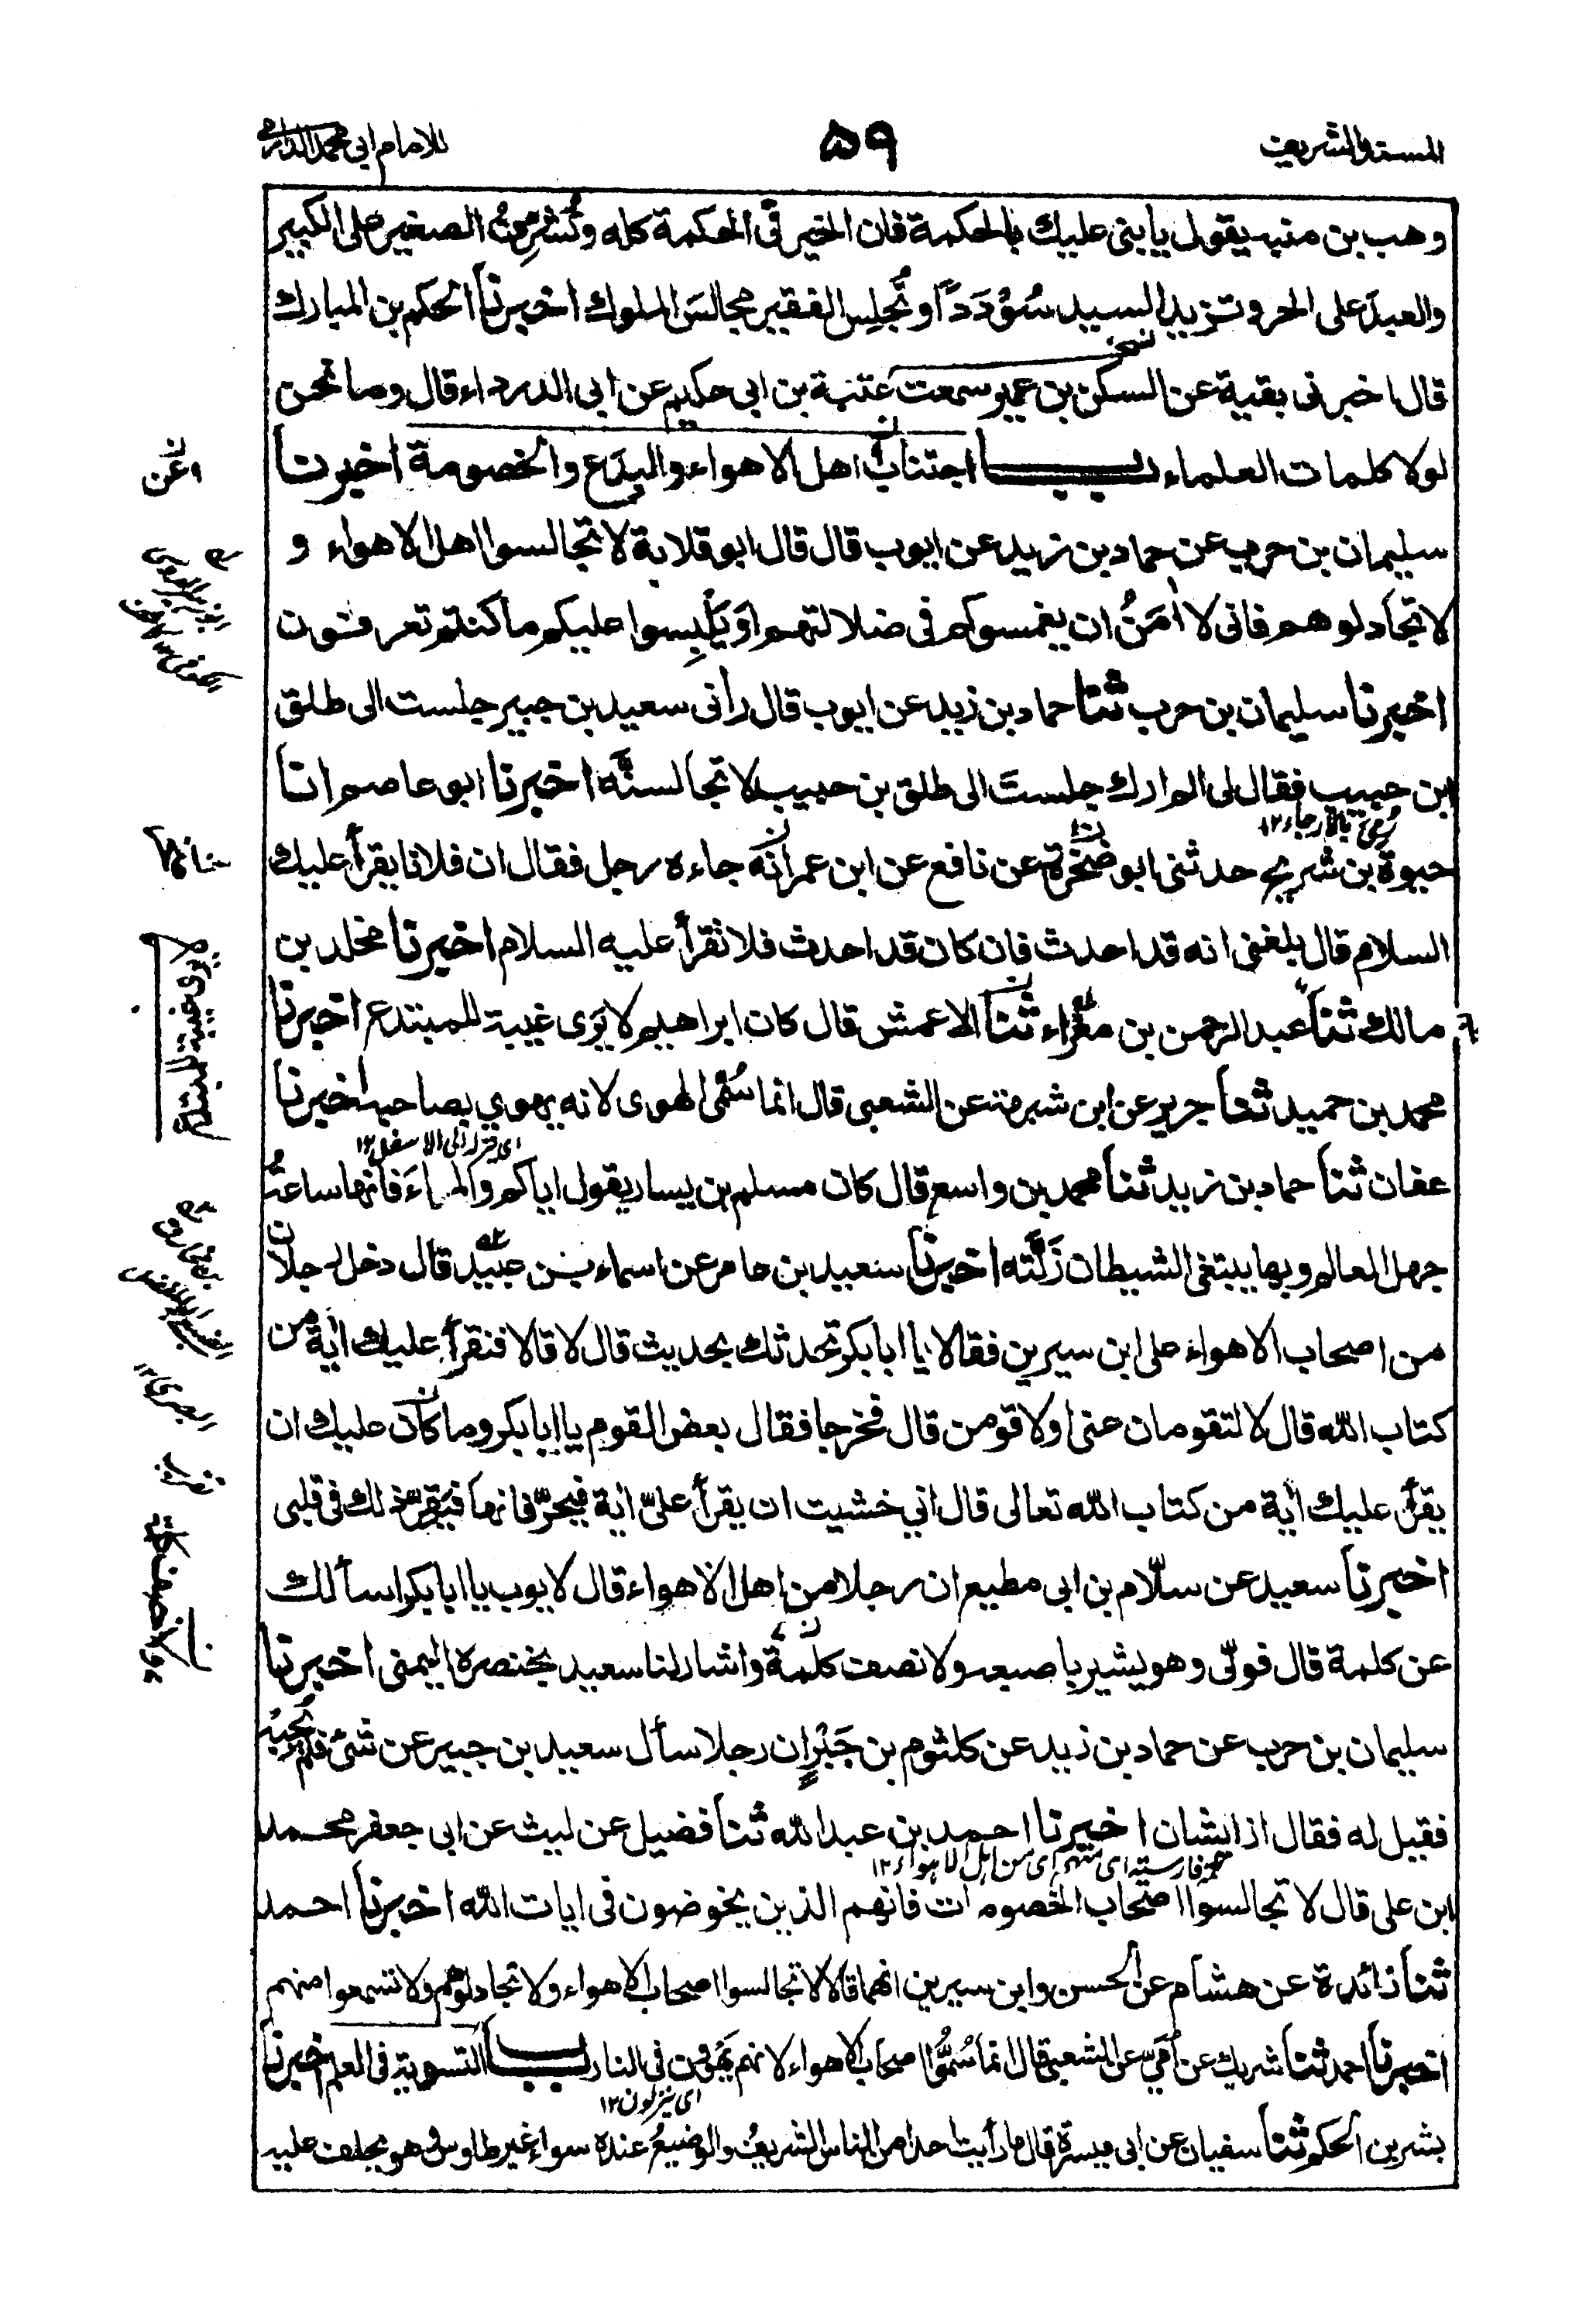 المسند الشريف
٥٩
للامام ابي محمد الدارمي
وهب بن منبه يقول يا بنى عليك بالحكمة فان الخير فى الحكمة كله وتُشَرِّفُ الصغير على الكبير
والعبدَ على الحر وتزيد السيد سُؤدَدًا وتُجلِس الفقير مجالسَ الملوك اخبرنا الحكم بن المبارك
قال اخبرنى بقية عن السكن بن عمير سمعت عتبة بن ابى حكيم عن ابى الدرداء قال وما نحن
لولا كلمات العلماء باب اجتناب اهل الاهواء والبدع والخصومة اخبرنا
سليمان بن حرب عن حماد بن زيد عن ايوب قال قال ابو قلابة لا تجالسوا اهل الاهواء و
لا تجادلوهم فانى لا اٰمَنُ ان يغمسوكم فى ضلالتهم او يَلْبِسوا عليكم ما كنتم تعرفون
اخبرنا سليمان بن حرب ثنا حماد بن زيد عن ايوب قال رأنى سعيد بن جبير جلست الى طلق
ابن حبيب فقال لى الم ارك جلستَ الى طلق بن حبيب لا تجالسنَّه اخبرنا ابو عاصم انا
رُمِىَ بالارجاء ١٢
حيوة بن شريح حدثنى ابو صخرة عن نافع عن ابن عمر انه جاءه رجل فقال ان فلانا يقرأ عليك
السلام قال بلغنى انه قد احدث فان كان قد احدث فلا تقرأ عليه السلام اخبرنا مخلد بن
مالك ثنا عبد الرحمن بن مغراء ثنا الاعمش قال كان ابراهيم لا يَرَى غيبة للمبتدع اخبرنا
محمد بن حميد ثنا جرير عن ابن شبرمة عن الشعبى قال انما سُمّى الهوى لانه يهوي بصاحبه اخبرنا
اى تنزله الى الاسفل ١٢
عفان ثنا حماد بن زيد ثنا محمد بن واسع قال كان مسلم بن يسار يقول اياكم والمراءَ فانها ساعةُ
جهل العالم وبها يبتغى الشيطان زَلَّته اخبرنا سعيد بن عامر عن اسماء بن عبيد قال دخل رجلان
من اصحاب الاهواء على ابن سيرين فقالا يا ابا بكر نحدثك بحديث قال لا قالا فنقرأ عليك اٰية من
كتاب الله قال لا لتقومان عنى او لاقومن قال فخرجا فقال بعض القوم يا ابا بكر وما كان عليك ان
يقرأ عليك اٰية من كتاب الله تعالى قال انى خشيت ان يقرأ علىّ اٰية فيحرّفانها فيَقِرّ ذلك فى قلبى
اخبرنا سعيد عن سلّام بن ابى مطيع ان رجلا من اهل الاهواء قال لايوب يا ابا بكر اسألك
عن كلمة قال فولّى وهو يشير باصبعه ولا نصف كلمة واشار لنا سعيد بخنصره اليمنى اخبرنا
سليمان بن حرب عن حماد بن زيد عن كلثوم بن جَبْرٍ ان رجلا سأل سعيد بن جبير عن شئ فلم يُجِبْه
فقيل له فقال ازايشان اخبرنا احمد بن عبد الله ثنا فضيل عن ليث عن ابى جعفر محمد
فارسية اى منهم اى من اهل الاهواء ١٢
ابن على قال لا تجالسوا اصحاب الخصومات فانهم الذين يخوضون فى ايات الله اخبرنا احمد
ثنا زائدة عن هشام عن الحسن وابن سيرين انهما قالا لا تجالسوا اصحاب الاهواء ولا تجادلوهم ولا تسمعوا منهم
اخبرنا احمد ثنا شريك عن اُمَىّ عن الشعبى قال انما سُمُّوا اصحاب الاهواء لانهم يَهْوُون فى النار باب التسوية فى العلم اخبرنا
اى ينزلون ١٢
بشر بن الحكم ثنا سفيان عن ابى ميسرة قال ما رأيت احدا من الناس الشريفُ والوضيعُ عنده سواء غير طاوس وهو يحلف عليه